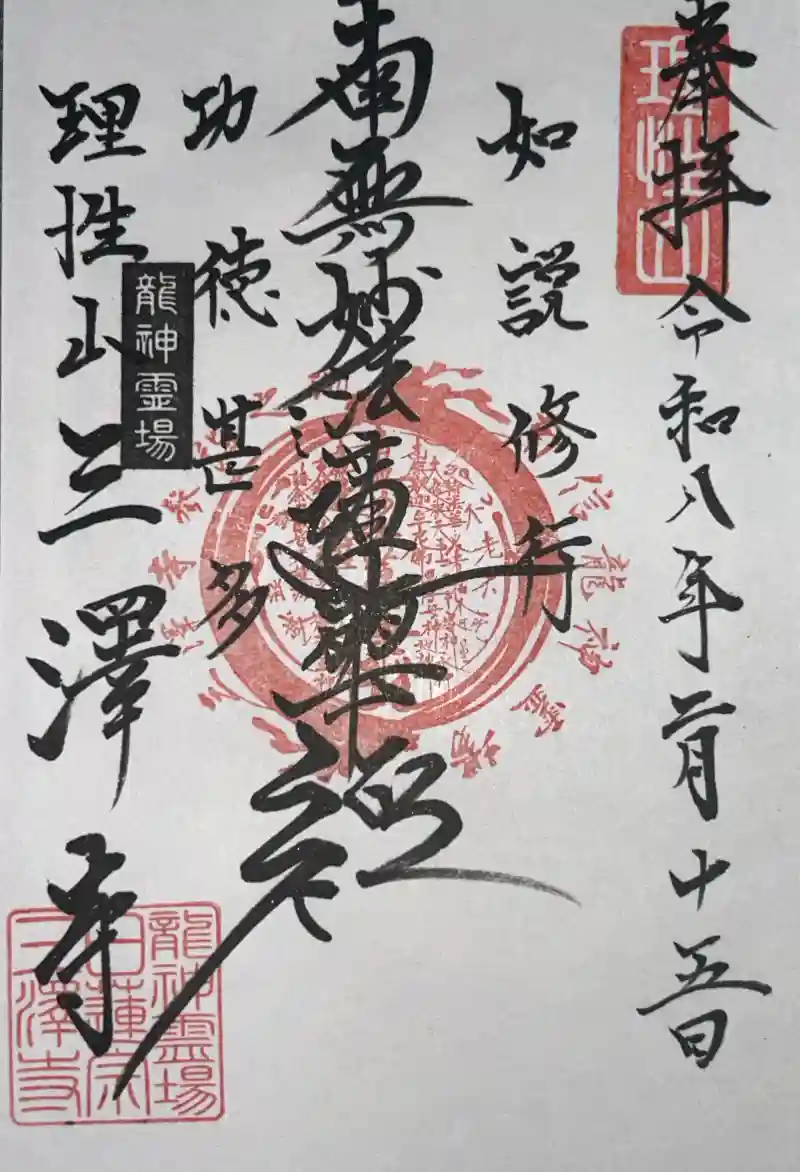 奉拝 令和八年二月十五日
理性山
如説修行
南無妙法蓮華経
功徳甚多
龍神霊場
理性山三澤寺
龍神霊場
日蓮宗
三澤寺
龍神霊場
不老不